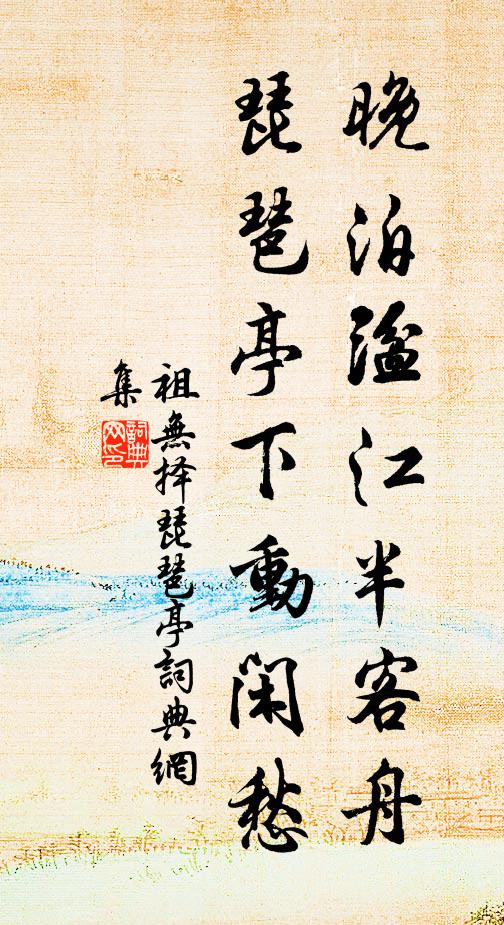 晚泊湓江半客舟
琵琶亭下動闲愁
祖無择琵琶亭詞典網
集
詞典网印